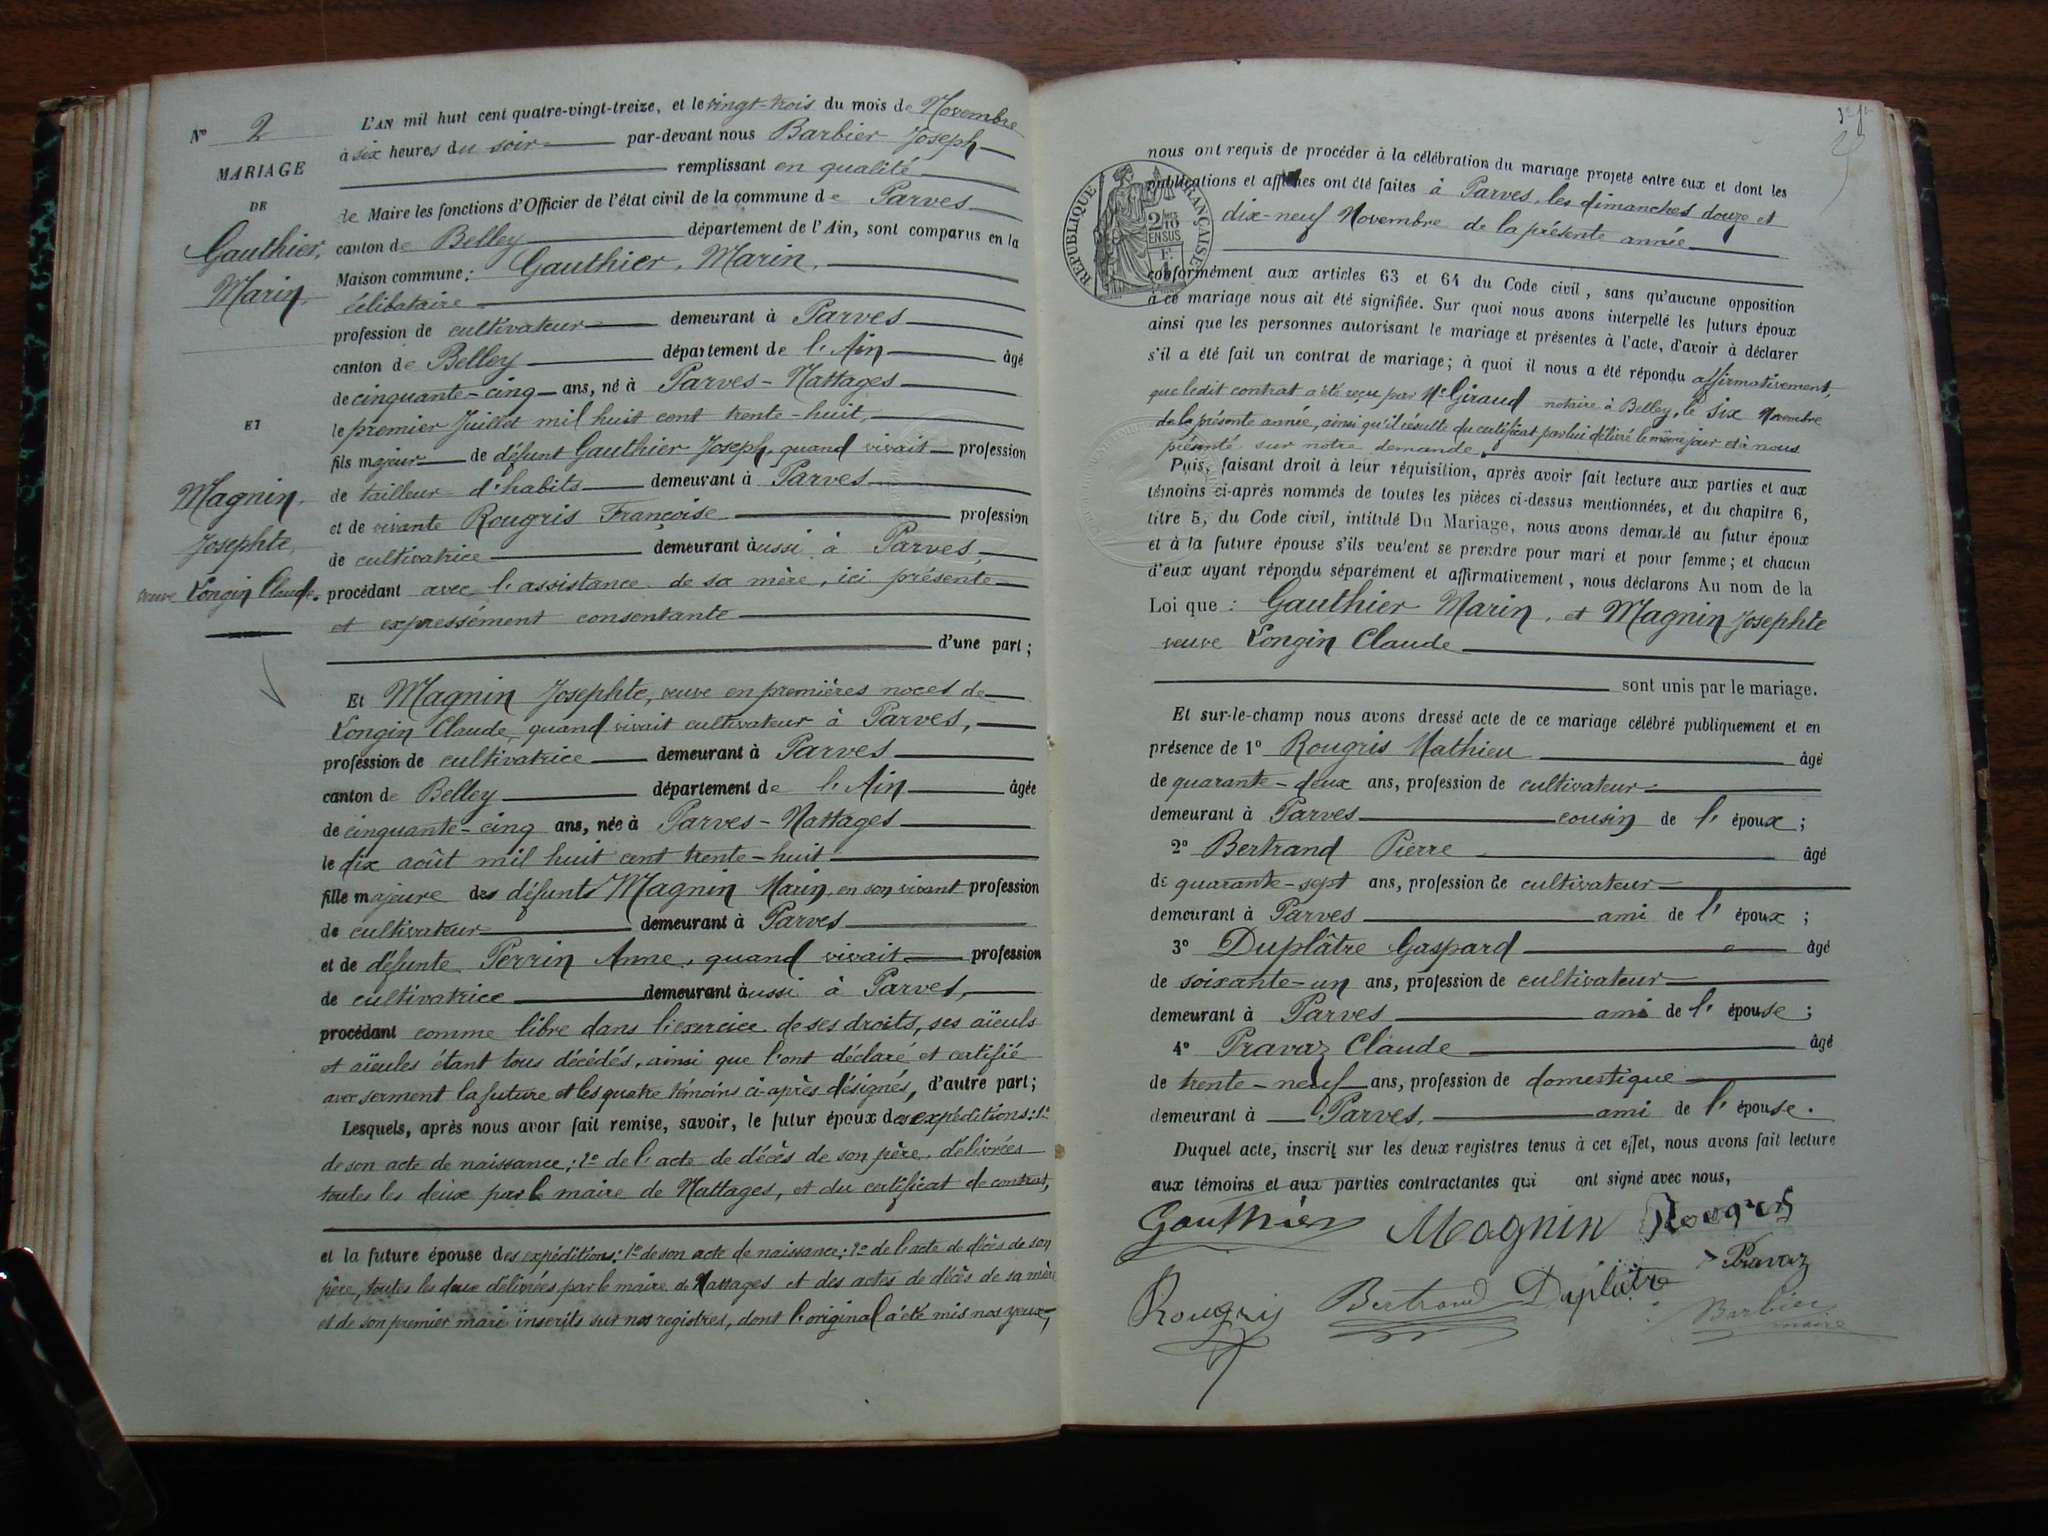 N° 2
MARIAGE
DE
Gauthier,
Marin,
ET
Magnin,
Josephte,
veuve Longin Claude.
L'AN mil huit cent quatre-vingt-treize, et le vingt-trois du mois de Novembre
à six heures du soir par-devant nous Barbier Joseph
remplissant en qualité
de Maire les fonctions d'Officier de l'état civil de la commune de Parves
canton de Belley département de l'Ain, sont comparus en la
Maison commune : Gauthier, Marin,
célibataire
profession de cultivateur demeurant à Parves
canton de Belley département de l'Ain âgé
de cinquante-cinq ans, né à Parves-Nattages
le premier Juillet mil huit cent trente-huit,
fils majeur de défunt Gauthier Joseph, quand vivait profession
de tailleur d'habits demeurant à Parves
et de vivante Rougris Françoise profession
de cultivatrice demeurant aussi à Parves,
procédant avec l'assistance de sa mère, ici présente
et expressément consentante
d'une part ;
Et Magnin Josephte, veuve en premières noces de
Longin Claude, quand vivait cultivateur à Parves,
profession de cultivatrice demeurant à Parves
canton de Belley département de l'Ain âgée
de cinquante-cinq ans, née à Parves-Nattages
le dix août mil huit cent trente-huit
fille majeure des défunts Magnin Marin, en son vivant profession
de cultivateur demeurant à Parves
et de défunte Perrin Anne, quand vivait profession
de cultivatrice demeurant aussi à Parves,
procédant comme libre dans l'exercice de ses droits, ses aïeuls
et aïeules étant tous décédés, ainsi que l'ont déclaré et certifié
avec serment la future et les quatre témoins ci-après désignés, d'autre part ;
Lesquels, après nous avoir fait remise, savoir, le futur époux des expéditions : 1°
de son acte de naissance ; 2° de l'acte de décès de son père, délivrées
toutes les deux par le maire de Nattages, et du certificat de contrat,
et la future épouse des expéditions : 1° de son acte de naissance ; 2° de l'acte de décès de son
père, toutes les deux délivrées par le maire de Nattages et des actes de décès de sa mère
et de son premier mari inscrits sur nos registres, dont l'original a été mis nos yeux,
nous ont requis de procéder à la célébration du mariage projeté entre eux et dont les
publications et affiches ont été faites à Parves, les dimanches douze et
dix-neuf Novembre de la présente année
RÉPUBLIQUE FRANÇAISE
2/10 EN SUS
conformément aux articles 63 et 64 du Code civil, sans qu'aucune opposition
à ce mariage nous ait été signifiée. Sur quoi nous avons interpellé les futurs époux
ainsi que les personnes autorisant le mariage et présentes à l'acte, d'avoir à déclarer
s'il a été fait un contrat de mariage ; à quoi il nous a été répondu affirmativement,
que ledit contrat a été reçu par Me Giraud notaire à Belley, le six Novembre
de la présente année, ainsi qu'il résulte du certificat par lui délivré le même jour et à nous
présenté sur notre demande.
Puis, faisant droit à leur réquisition, après avoir fait lecture aux parties et aux
témoins ci-après nommés de toutes les pièces ci-dessus mentionnées, et du chapitre 6,
titre 5, du Code civil, intitulé Du Mariage, nous avons demandé au futur époux
et à la future épouse s'ils veulent se prendre pour mari et pour femme ; et chacun
d'eux ayant répondu séparément et affirmativement, nous déclarons Au nom de la
Loi que : Gauthier Marin, et Magnin Josephte
veuve Longin Claude
sont unis par le mariage.
Et sur-le-champ nous avons dressé acte de ce mariage célébré publiquement et en
présence de 1° Rougris Mathieu âgé
de quarante-deux ans, profession de cultivateur
demeurant à Parves cousin de l'époux ;
2° Bertrand Pierre âgé
de quarante-sept ans, profession de cultivateur
demeurant à Parves ami de l'époux ;
3° Duplâtre Gaspard âgé
de soixante-un ans, profession de cultivateur
demeurant à Parves ami de l'épouse ;
4° Pravaz Claude âgé
de trente-neuf ans, profession de domestique
demeurant à Parves, ami de l'épouse.
Duquel acte, inscrit sur les deux registres tenus à cet effet, nous avons fait lecture
aux témoins et aux parties contractantes qui ont signé avec nous,
Gauthier Magnin Rougris
Pravaz
Rougris Bertrand Duplatre
Barbier
maire